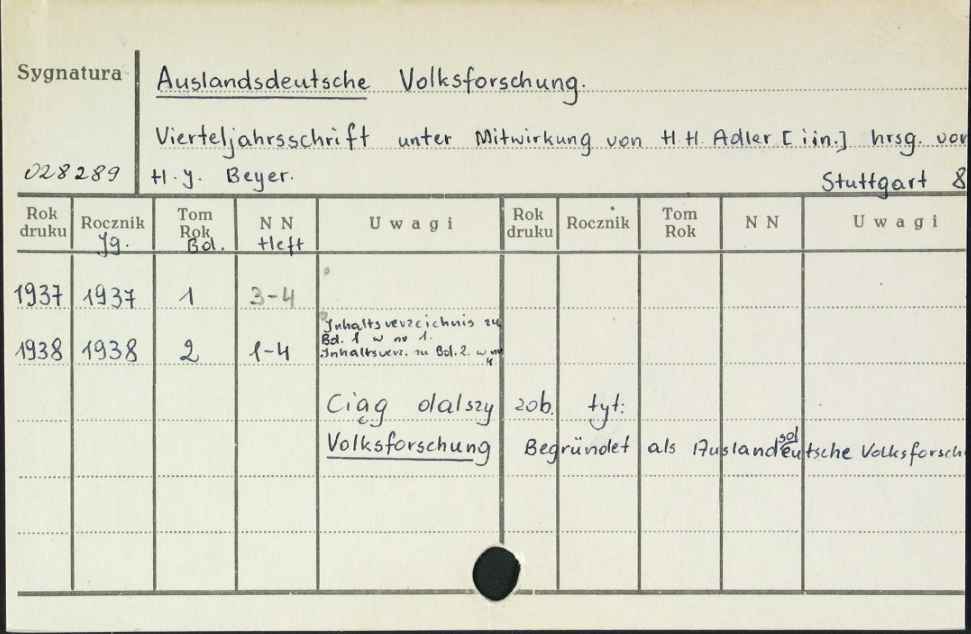 Sygnatura
Auslandsdeutsche Volksforschung.
Vierteljahrsschrift unter Mitwirkung von H.H. Adler [i in.] hrsg. von
028289 H. J. Beyer.
Stuttgart 8
Rok druku Rocznik Tom Rok N N Uwagi Rok druku Rocznik Tom Rok N N Uwagi
Jg. Bd. Heft
1937 1937 1 3-4
Inhaltsverzeichnis zu
Bd. 1 w nr 1.
1938 1938 2 1-4 Inhaltsverz. zu Bd. 2. w nr
4
Ciąg dalszy zob. tyt:
Volksforschung Begründet als Auslandsdeutsche Volksforsch